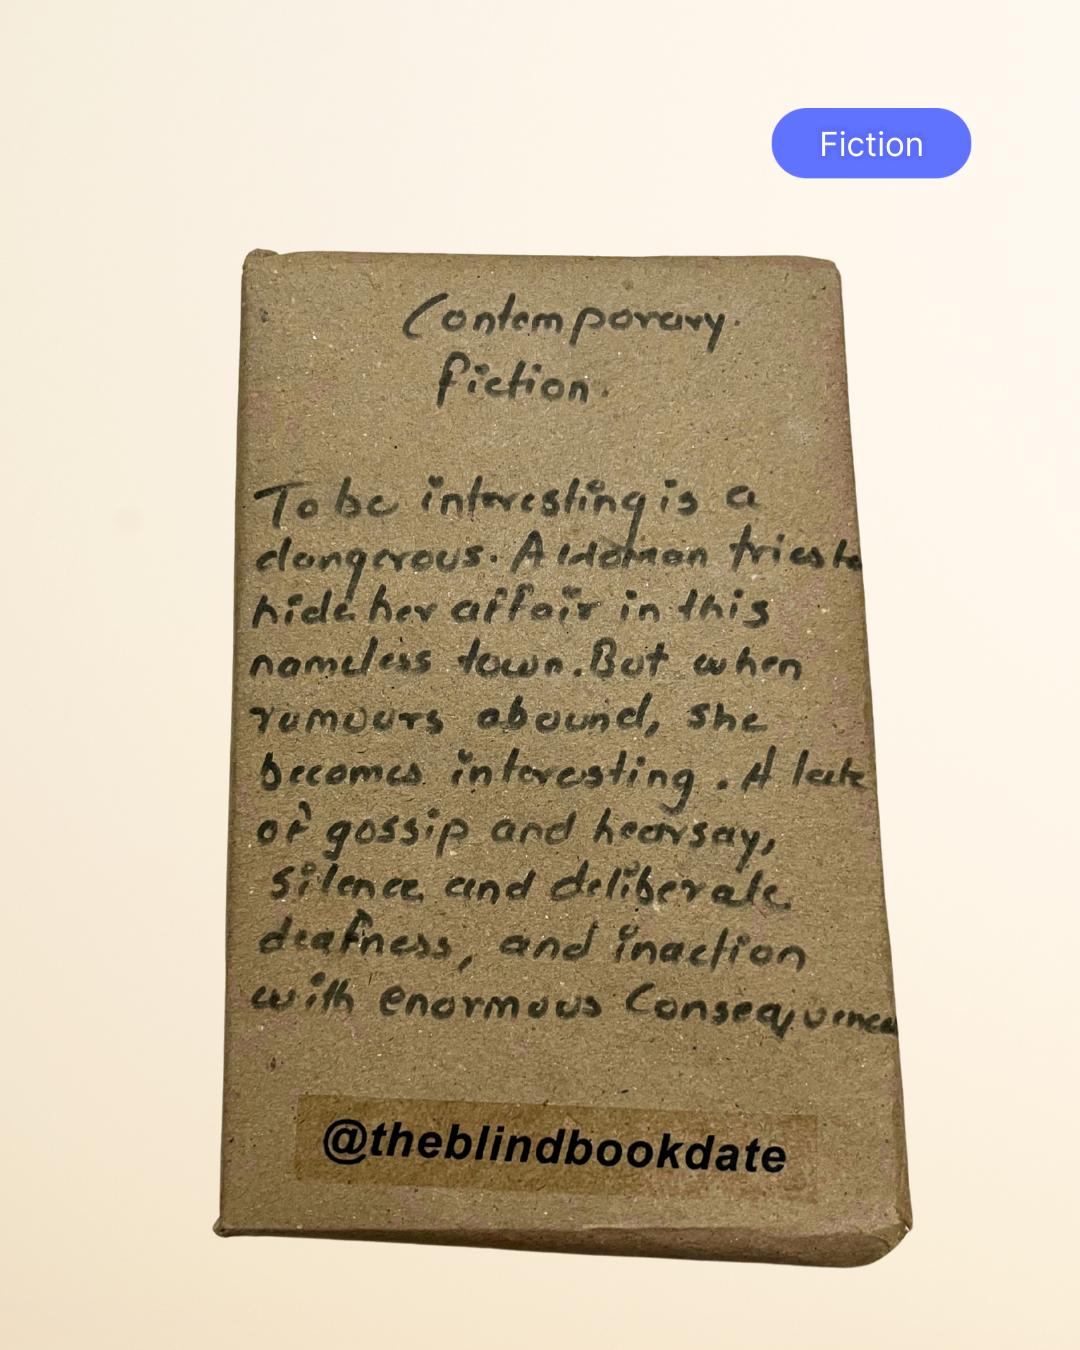 Fiction
Contemporary.
fiction.
To be interesting is a
dangerous. A woman tries to
hide her affair in this
nameless town. But when
rumours abound, she
becomes interesting. A tale
of gossip and hearsay,
silence and deliberate
deafness, and inaction
with enormous Consequences
@theblindbookdate